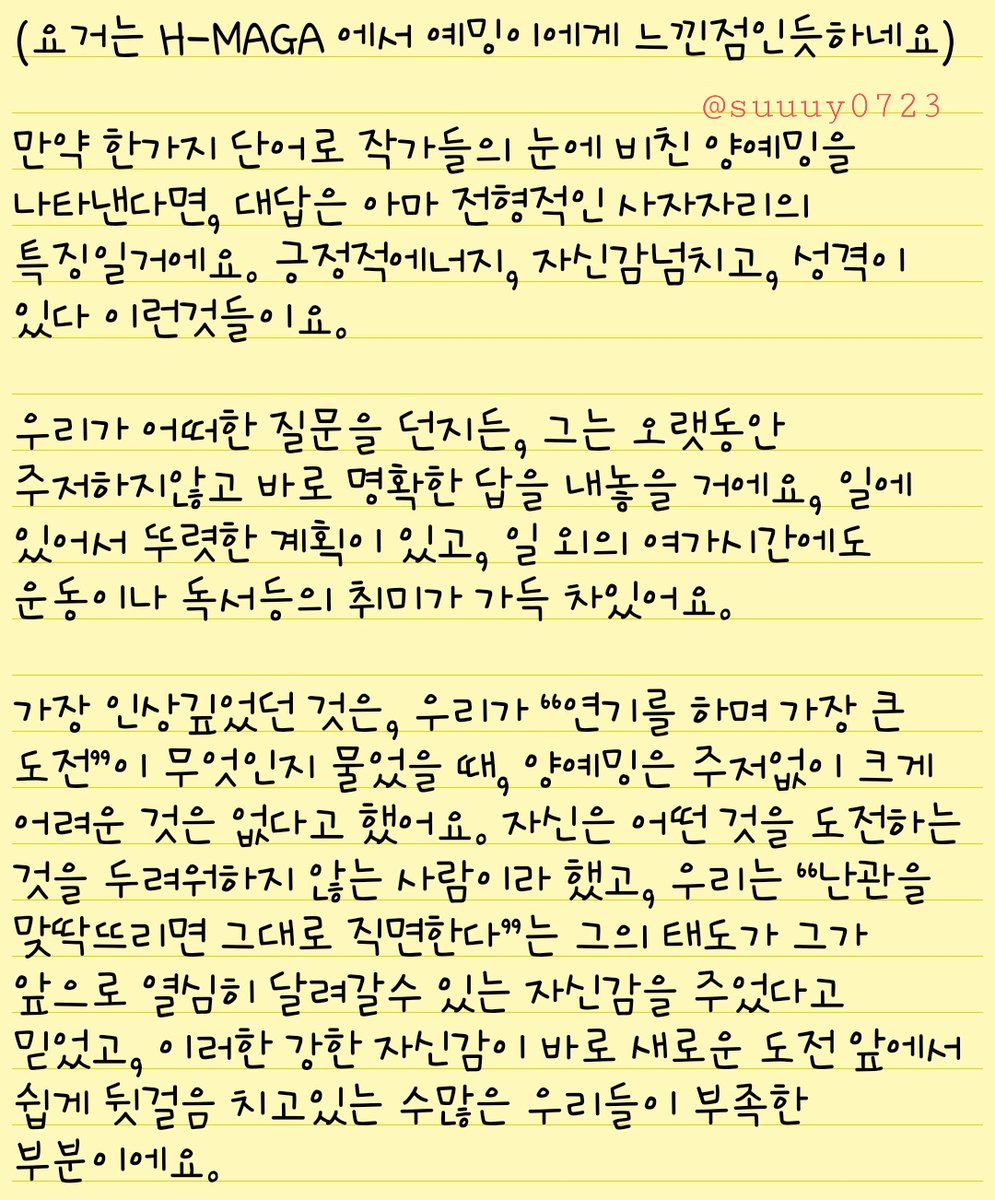 (요거는 H-MAGA 에서 예밍이에게 느낀점인듯하네요)
@suuuy0723
만약 한가지 단어로 작가들의 눈에 비친 양예밍을
나타낸다면, 대답은 아마 전형적인 사자자리의
특징일거에요. 긍정적에너지, 자신감넘치고, 성격이
있다 이런것들이요.
우리가 어떠한 질문을 던지든, 그는 오랫동안
주저하지않고 바로 명확한 답을 내놓을 거에요, 일에
있어서 뚜렷한 계획이 있고, 일 외의 여가시간에도
운동이나 독서등의 취미가 가득 차있어요.
가장 인상깊었던 것은, 우리가 “연기를 하며 가장 큰
도전”이 무엇인지 물었을 때, 양예밍은 주저없이 크게
어려운 것은 없다고 했어요. 자신은 어떤 것을 도전하는
것을 두려워하지 않는 사람이라 했고, 우리는 “난관을
맞딱뜨리면 그대로 직면한다”는 그의 태도가 그가
앞으로 열심히 달려갈수 있는 자신감을 주었다고
믿었고, 이러한 강한 자신감이 바로 새로운 도전 앞에서
쉽게 뒷걸음 치고있는 수많은 우리들이 부족한
부분이에요.